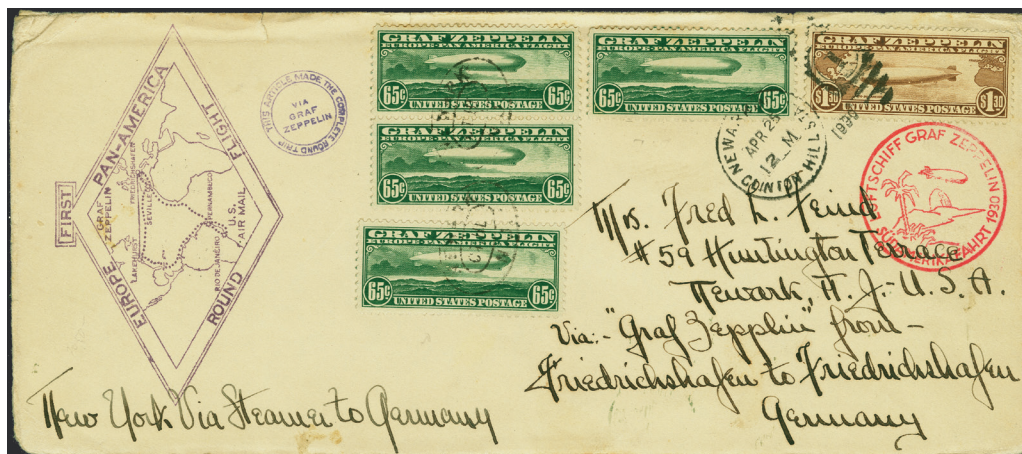 FIRST
EUROPE PAN-AMERICA
ROUND FLIGHT
GRAF
ZEPPELIN
FRIEDRICHSHAFEN
SEVILLE
PERNAMBUCO
LAKEHURST
RIO DE JANEIRO
U.S.
AIR MAIL
THIS ARTICLE MADE THE COMPLETE ROUND TRIP
VIA
GRAF
ZEPPELIN
GRAF ZEPPELIN
EUROPE-PAN AMERICA FLIGHT
65¢ 65¢
UNITED STATES POSTAGE
GRAF ZEPPELIN
EUROPE-PAN AMERICA FLIGHT
65¢ 65¢
UNITED STATES POSTAGE
GRAF ZEPPELIN
EUROPE-PAN AMERICA FLIGHT
$1.30 $1.30
UNITED STATES POSTAGE
GRAF ZEPPELIN
EUROPE-PAN AMERICA FLIGHT
65¢ 65¢
UNITED STATES POSTAGE
GRAF ZEPPELIN
EUROPE-PAN AMERICA FLIGHT
65¢ 65¢
UNITED STATES POSTAGE
NEWARK
APR 25
12 M
1930
CLINTON HILL STA.
LUFTSCHIFF GRAF ZEPPELIN
SÜDAMERIKAFAHRT 1930
Mrs. Fred L. Feind
#59 Huntington Terrace
Newark, N. J.- U. S. A.
Via:- "Graf Zepplin" from-
Friedrichshafen to Friedrichshafen
Germany
New York Via Steamer to Germany